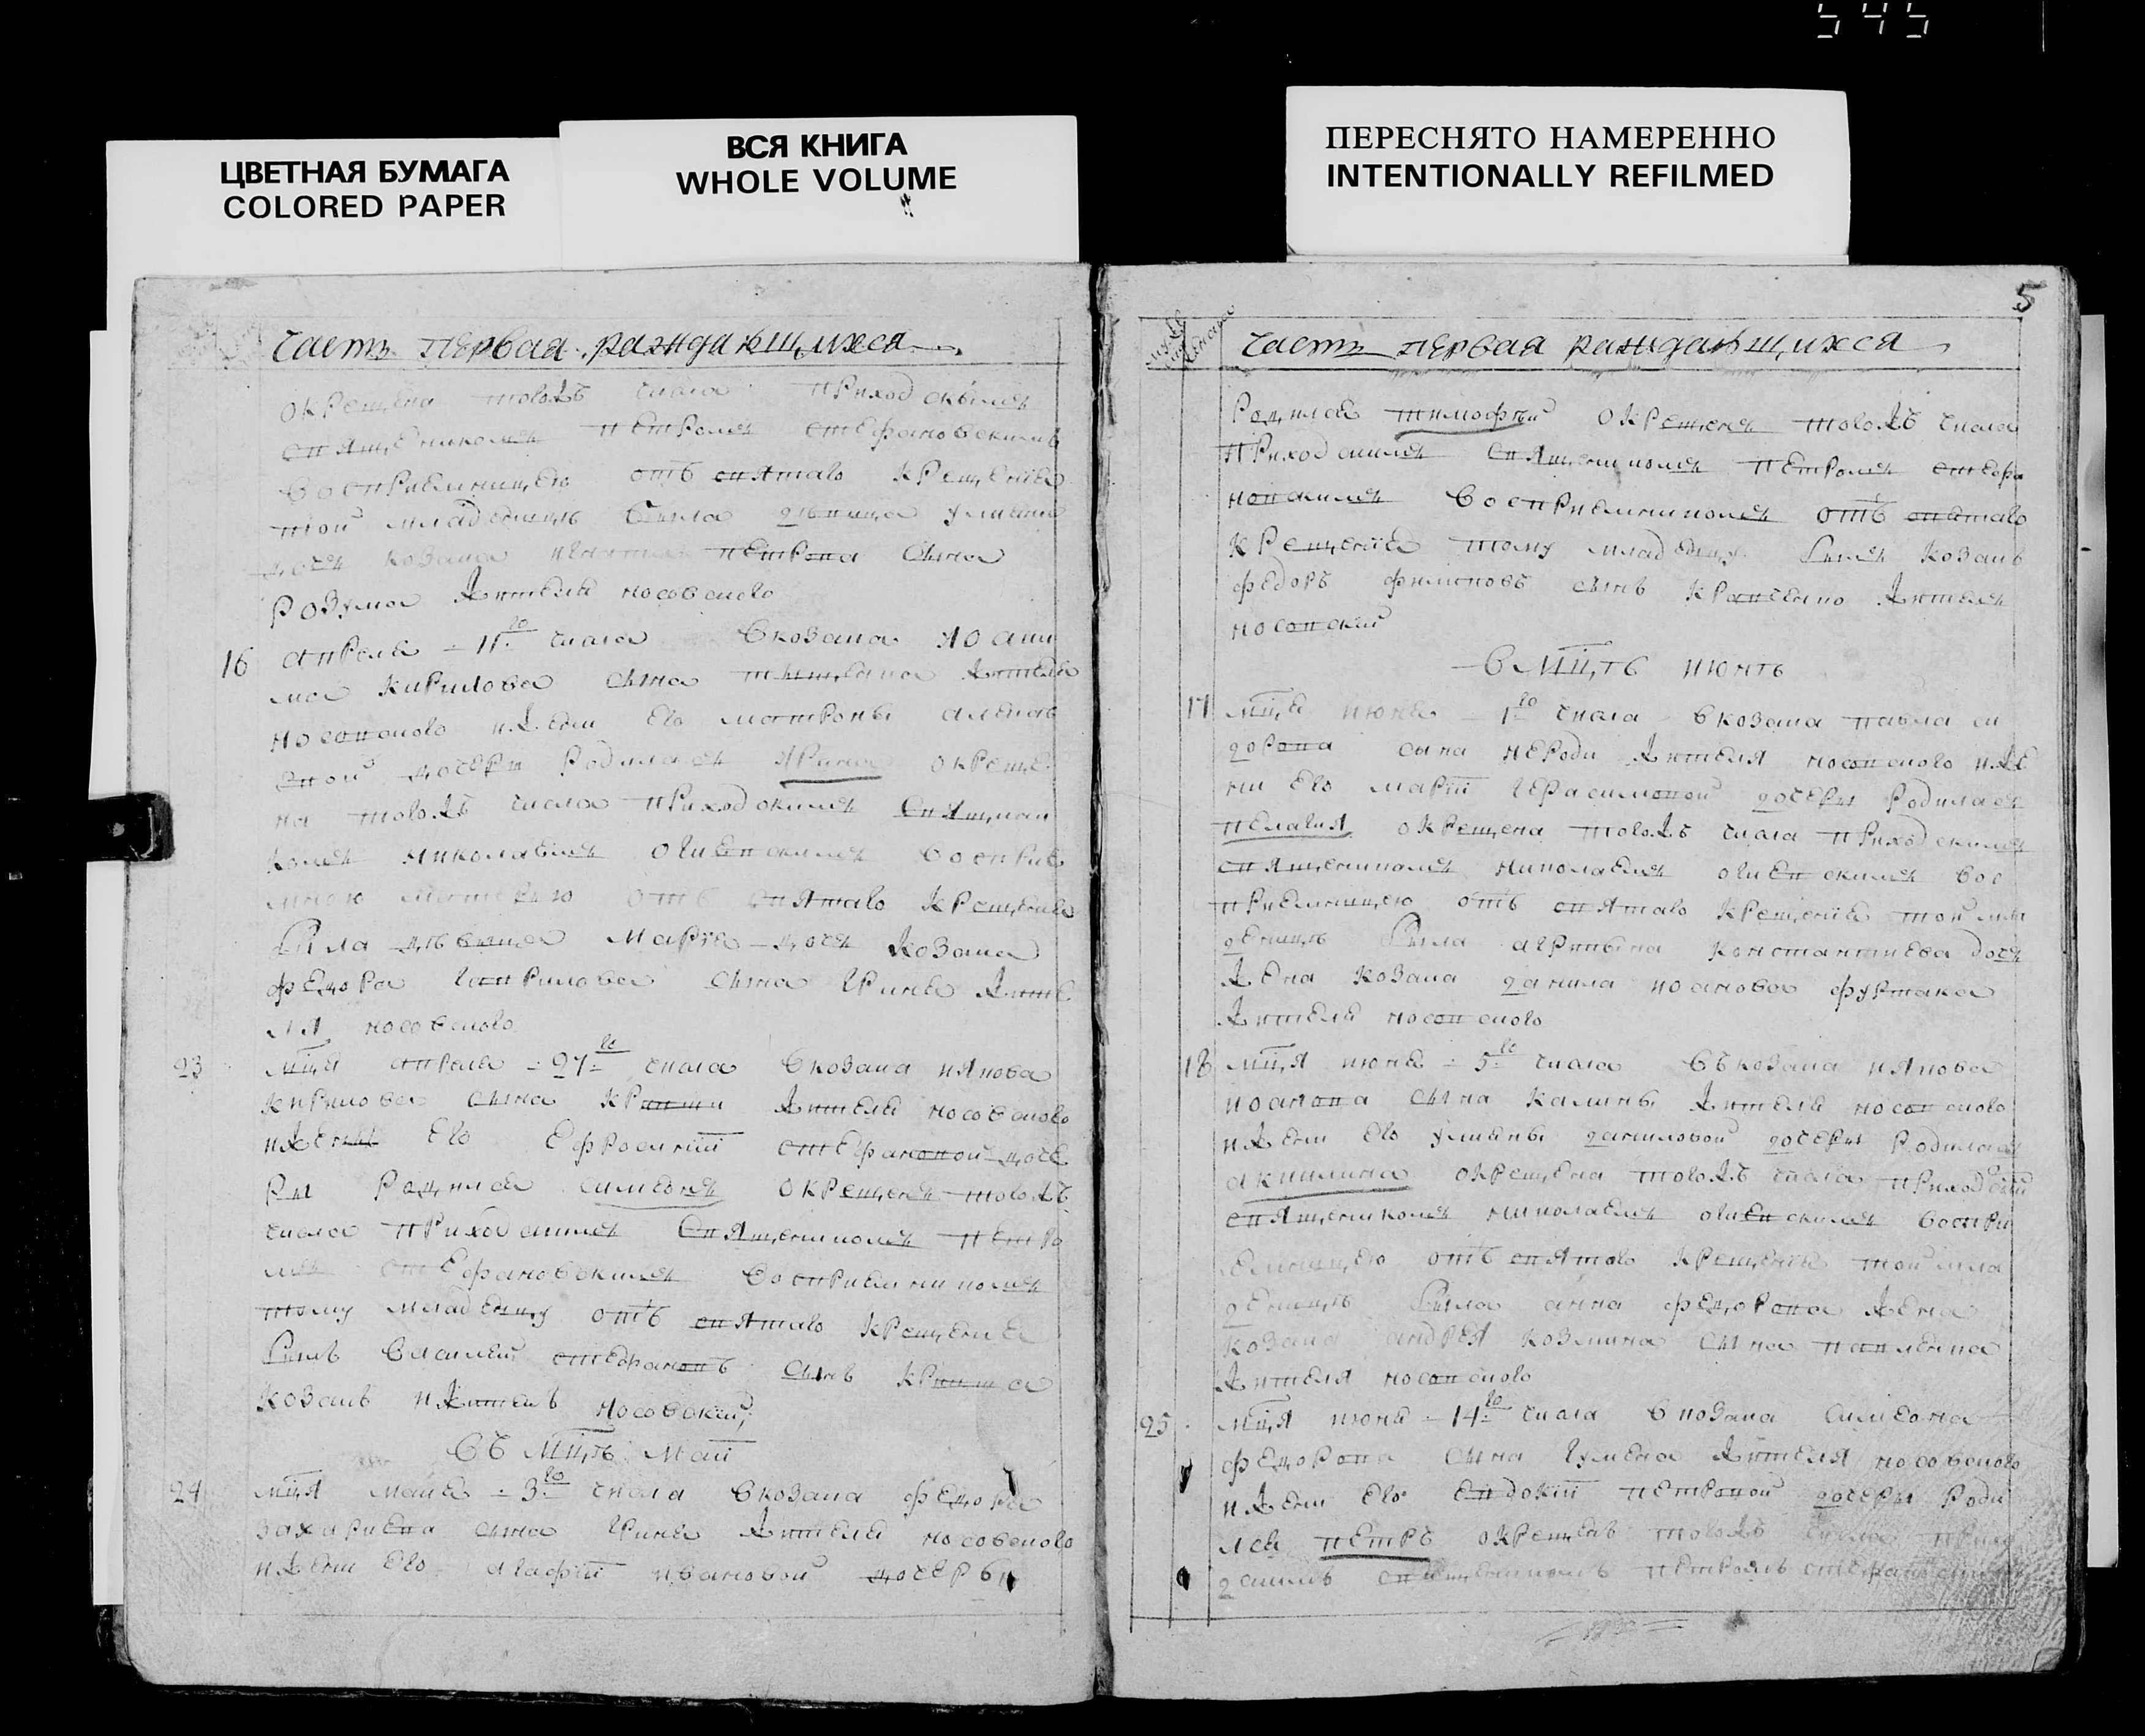 545
ЦВЕТНАЯ БУМАГА
COLORED PAPER
ВСЯ КНИГА
WHOLE VOLUME
ПЕРЕСНЯТО НАМЕРЕННО
INTENTIONALLY REFILMED
часть первая раждающихся
окрещена тогожъ числа приходскимъ
священикомъ петромъ стефановскимъ
восприемницею отъ святаго крещения
той младеницѣ была двица улияна
дочь козака петрова сына
розума жителя носовского
16 априля 11го числа в козака иоаки
ма кирилова сына жителя
носовского и жени его матроны
вной дочери родилася ирина окреще
на тогожъ числа приходскимъ священи
комъ николаемъ огиевскимъ восприе
мною материю отъ святаго крещения
была дѣвица мария дочь козака
федора гаврилова сына грины жите
ля носовского
23 мця априля 27го числа в козака иякова
кирилова сына жителя носовского
и жены его ефросинии стефановой доче
ри родился симеонъ окрещенъ тогожъ
числа приходскимъ священикомъ петро
мъ стефановскимъ восприемникомъ
тому младенцу отъ святаго крещения
былъ василий стефановъ сынъ
козакъ и житель носовский
въ мцѣ май
24 мця мания 3го числа в козака федора
захариева сына грины жителя носовского
и жени его агафии ивановой дочеры
5
часть первая раждающихся
родился тимофѣй окрещенъ тогожъ числа
приходскимъ священикомъ петромъ стефа
новскимъ восприемникомъ отъ святаго
крещения тому младенцу былъ козакъ
федоръ филиповъ сынъ кравченко житель
носовский
в мцѣ июнѣ
17 мця июня 1го числа в козака павла си
дорова сына нероди жителя носовского и же
ни его марии герасимовой дочери родилася
пелагия окрещена тогожъ числа приходскимъ
священикомъ николаемъ огиевскимъ вос
приемницею отъ святаго крещения той мла
деницѣ была агрипина константиева дочь
жена козака данила иоанова фуртака
жителя носовского
18 мця июня 5го числа въ козака иякова
иоанова сына калины жителя носовского
и жени его улияны даниловой дочеры родилася
акилина окрещена тогожъ числа приходский
священикомъ николаемъ огиевскимъ воспри
емницею отъ святаго крещения той мла
деницѣ была анна федорова жена
козака андрея козмина сына павленка
жителя носовского
25 мця июня 14го числа в козака симеона
федорова сына гумена жителя носовского
и жени его евдокии петровой дочеры роди
лся петръ окрещенъ тогожъ числа прихо
дскимъ священикомъ петромъ